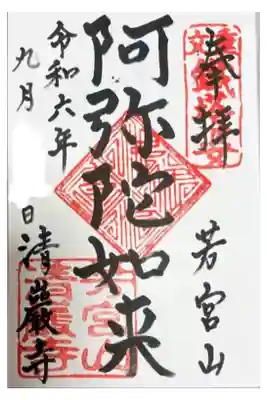 奉拝
芳宮山
阿弥陀如来
令和六年
九月 日
清巖寺